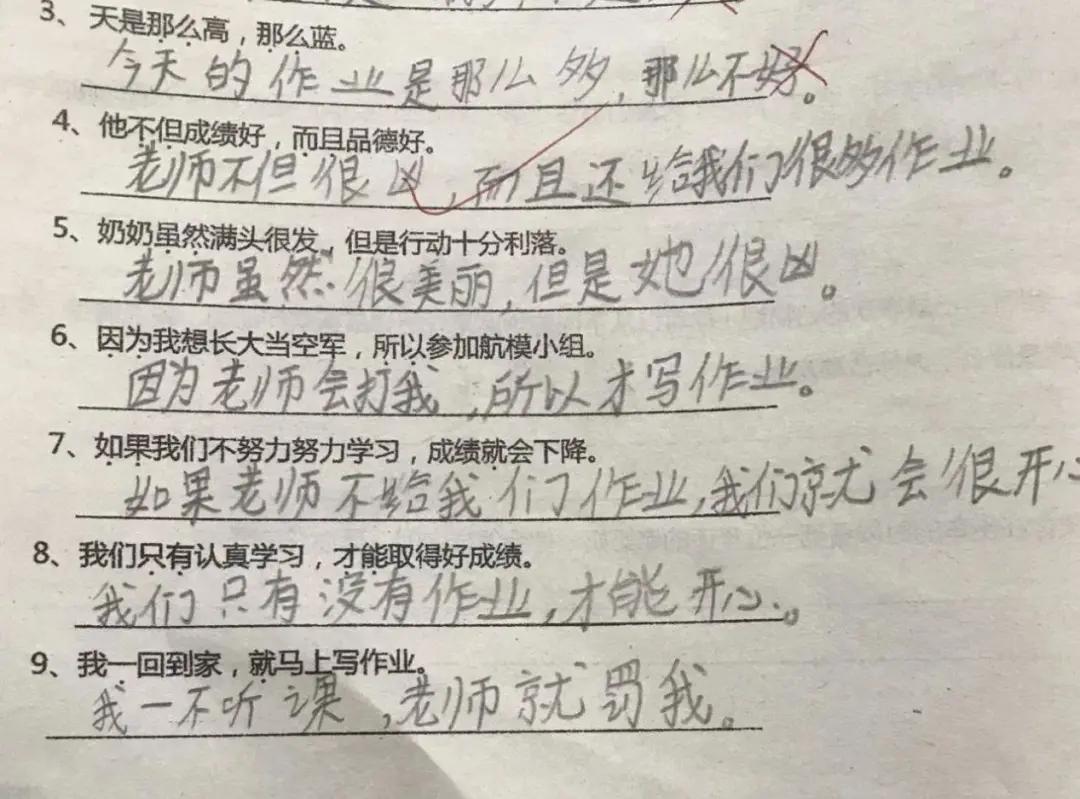 3、天是那么高，那么蓝。
今天的作业是那么多，那么不好。
4、他不但成绩好，而且品德好。
老师不但很凶，而且还给我们很多作业。
5、奶奶虽然满头很发，但是行动十分利落。
老师虽然很美丽，但是她很凶。
6、因为我想长大当空军，所以参加航模小组。
因为老师会打我，所以才写作业。
7、如果我们不努力努力学习，成绩就会下降。
如果老师不给我们作业，我们就会很开心
8、我们只有认真学习，才能取得好成绩。
我们只有没有作业，才能开心。
9、我一回到家，就马上写作业。
我一不听课，老师就罚我。